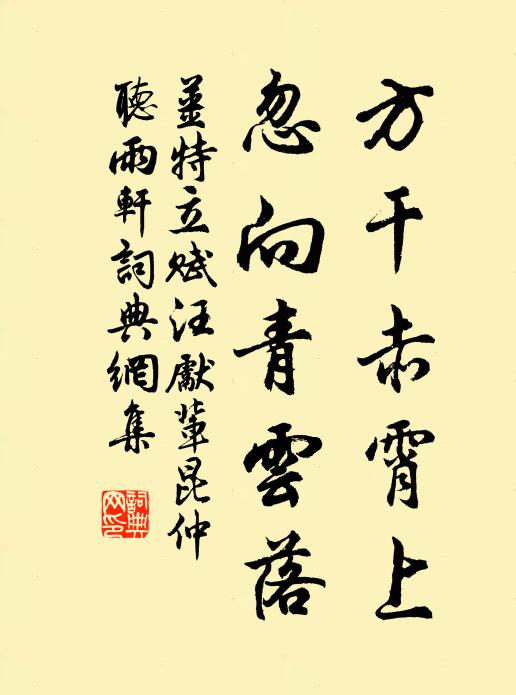 方干赤霄上
忽向青雲落
姜特立賦汪獻輩昆仲
聽雨軒詞典網集
詞典
网印